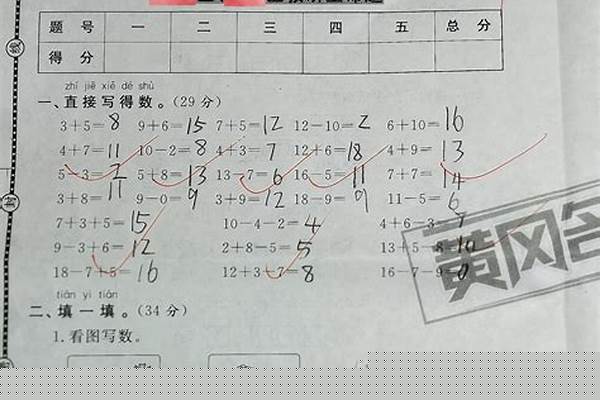 题号 一 二 三 四 五 总分
得分
zhí jiē xiě dé shù
一、直接写得数。(29分)
3+5=8 9+6=15 7+5=12 12-10=2 6+10=16
4+7=11 10-2=8 4+3=7 12+6=18 4+9=13
5-3=2 5+8=13 13-7=6 16-5=11 7+7=14
3+8=11 9-0=9 3+9=12 18-9=9 11-5=6
7+3+5=15 10-4-2=4 4+6-3=7
9-3+6=12 2+8-5=5 13+5-8=10
18-7+5=16 12+3-7=8 16-7-9=0
tián yi tián
二、填一填。(34分)
1.看图写数。
黄冈名